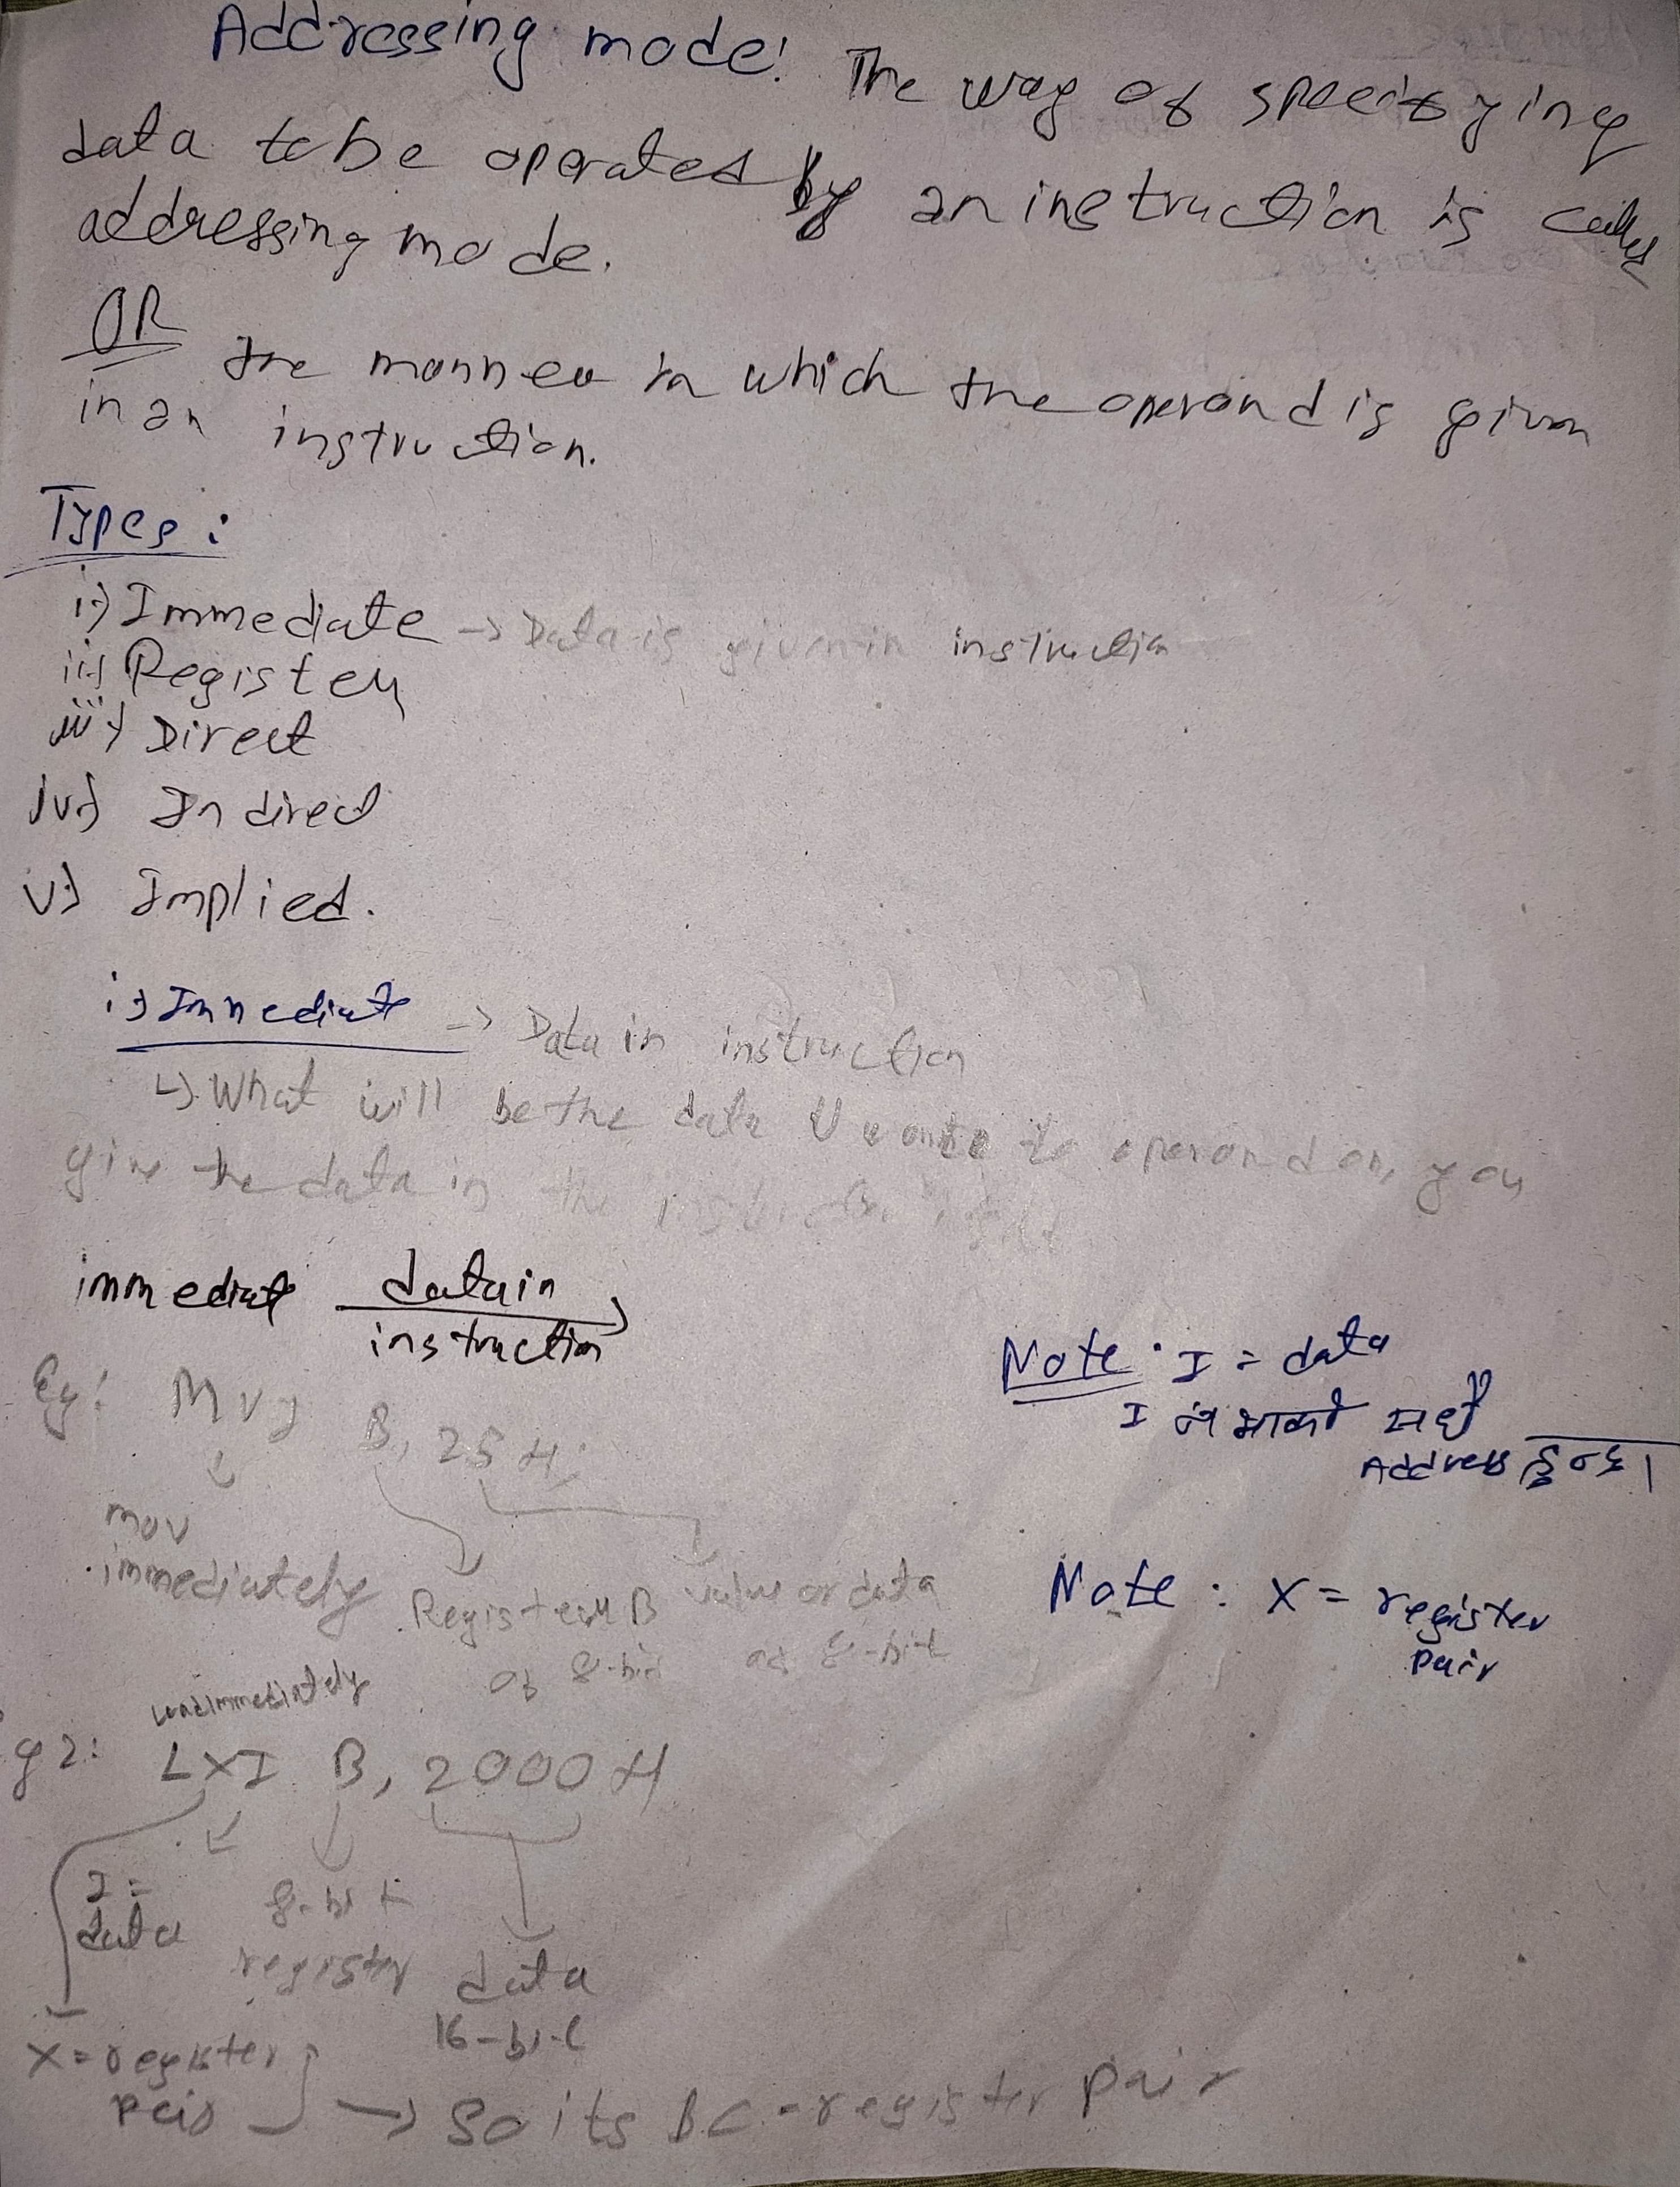 Addressing mode: The way of specifying
data to be operated by an instruction is called
addressing mode.
OR
The manner in which the operand is given
in an instruction.
Types:
i) Immediate -> Data is given in instruction
ii) Register
iii) Direct
iv) Indirect
v) Implied.
i) Immediat -> Data in instruction
What will be the data U wants to operand on, you
give the data in the
immediat data in
instruction
Eg: MVI B, 25H
mov
immediately
Register B
of 8-bit
value or data
of 8-bit
Note: I = data
I Address
Note: X = register
pair
Load immediately
g2: LXI B, 2000H
I =
data
8-bit
register
data
16-bit
X = register
pair
-> So its BC-register pair